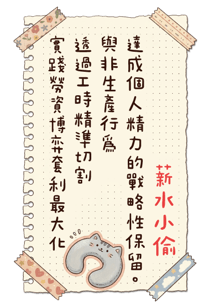 薪水小偷
達成個人精力的戰略性保留。
與非生產行為
透過工時精準切割
實踐勞資博弈套利最大化